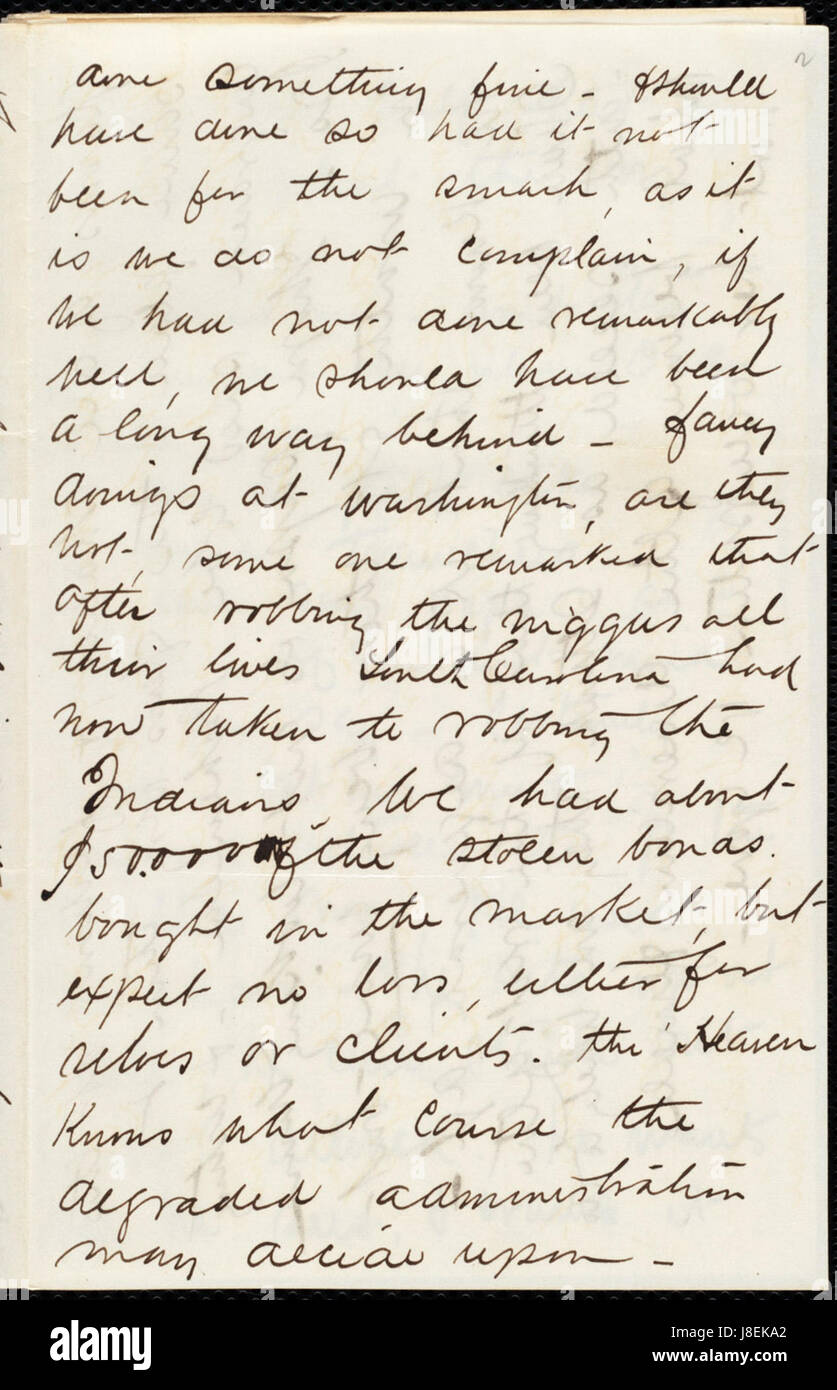 2
done something fine - & should
have done so had it not
been for the smash, as it
is we do not complain, if
we had not done remarkably
well, we should have been
a long way behind - fancy
doings at Washington, are they
not, some one remarked that
after robbing the niggers all
their lives South Carolina had
now taken to robbing the
Indians, We had about
$50.000 of the stolen bonds.
bought in the market, but
expect no loss, either for
selves or clients. tho' Heaven
Knows what course the
degraded administration
may decide upon -
alamy
Image ID: J8EKA2
www.alamy.com